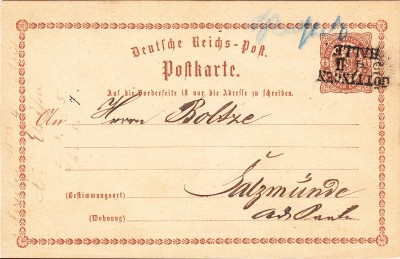 Deutsche Reichs-Post.
Postkarte.
Auf die Vorderseite ist nur die Adresse zu schreiben.
GÖTTINGEN
II
HALLE
An Herrn Boltze
Salzmünde
(Bestimmungsort)
a/d Saale
(Wohnung)